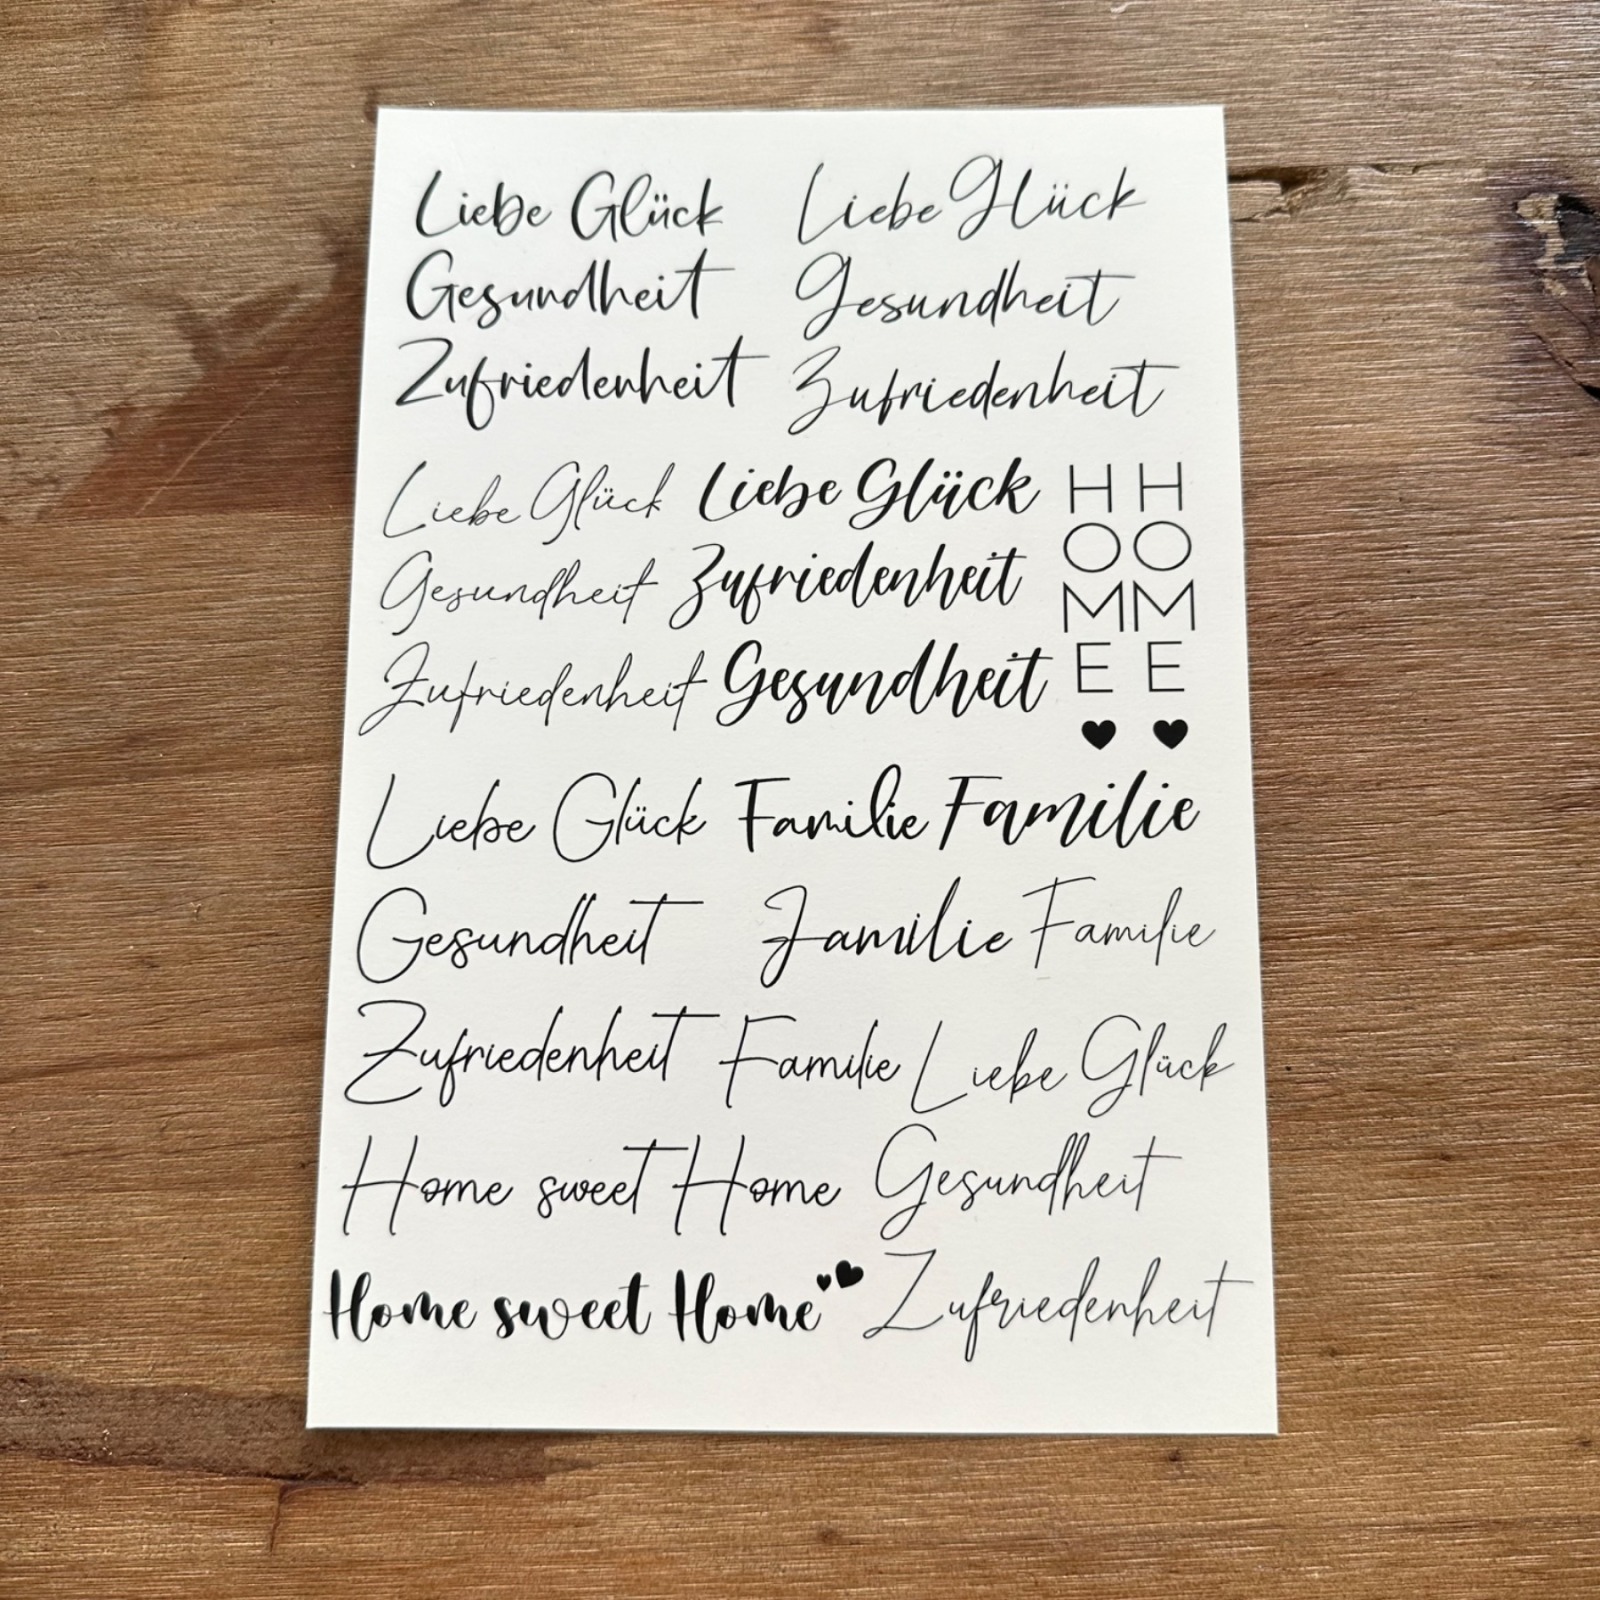 Liebe Glück
Gesundheit
Zufriedenheit
Liebe Glück
Gesundheit
Zufriedenheit
Liebe Glück
Gesundheit
Zufriedenheit
Liebe Glück
Zufriedenheit
Gesundheit
HOME ♥
HOME ♥
Liebe Glück
Gesundheit
Zufriedenheit
Familie Familie
Familie Familie
Familie
Liebe Glück
Gesundheit
Zufriedenheit
Home sweet Home
Home sweet Home ♥♥